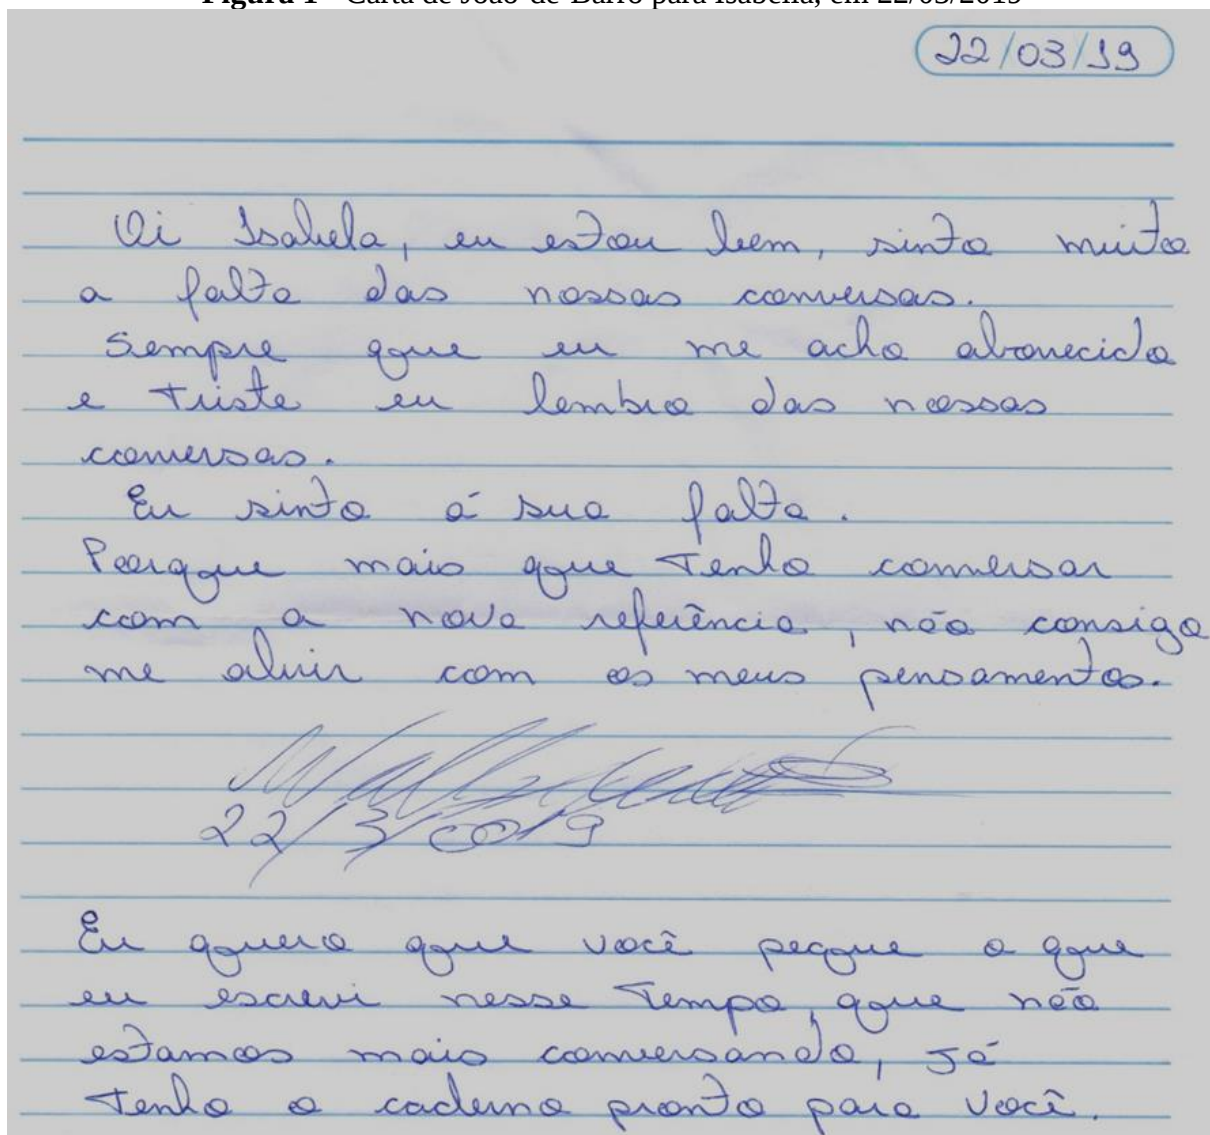 Figura 1 - Carta de João-de-Barro para Isabella, em 22/03/2019
22/03/19
Oi Isabela, eu estou bem, sinto muito
a falta das nossas conversas.
Sempre que eu me acho aborrecido
e triste eu lembro das nossas
conversas.
Eu sinto á sua falta.
Porque mais que Tenho conversar
com a nova referência, não consigo
me abrir com os meus pensamentos.
22/3/2019
Eu quero que você pegue o que
eu escrevi nesse Tempo, que não
estamos mais conversando, Já
Tenho o caderno pronto para Você.